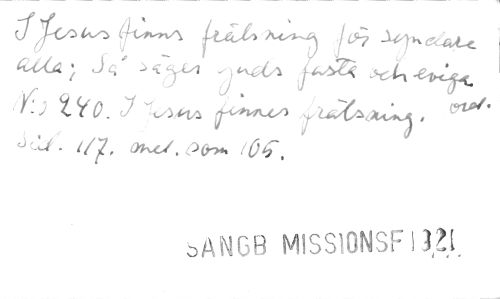 I Jesus finns frälsning för syndare
alla; Så säger guds fasta och eviga
N:o 240. I Jesus finnes frälsning. ord.
Sid. 117. mel. som 105.
SANGB MISSIONSF 1921